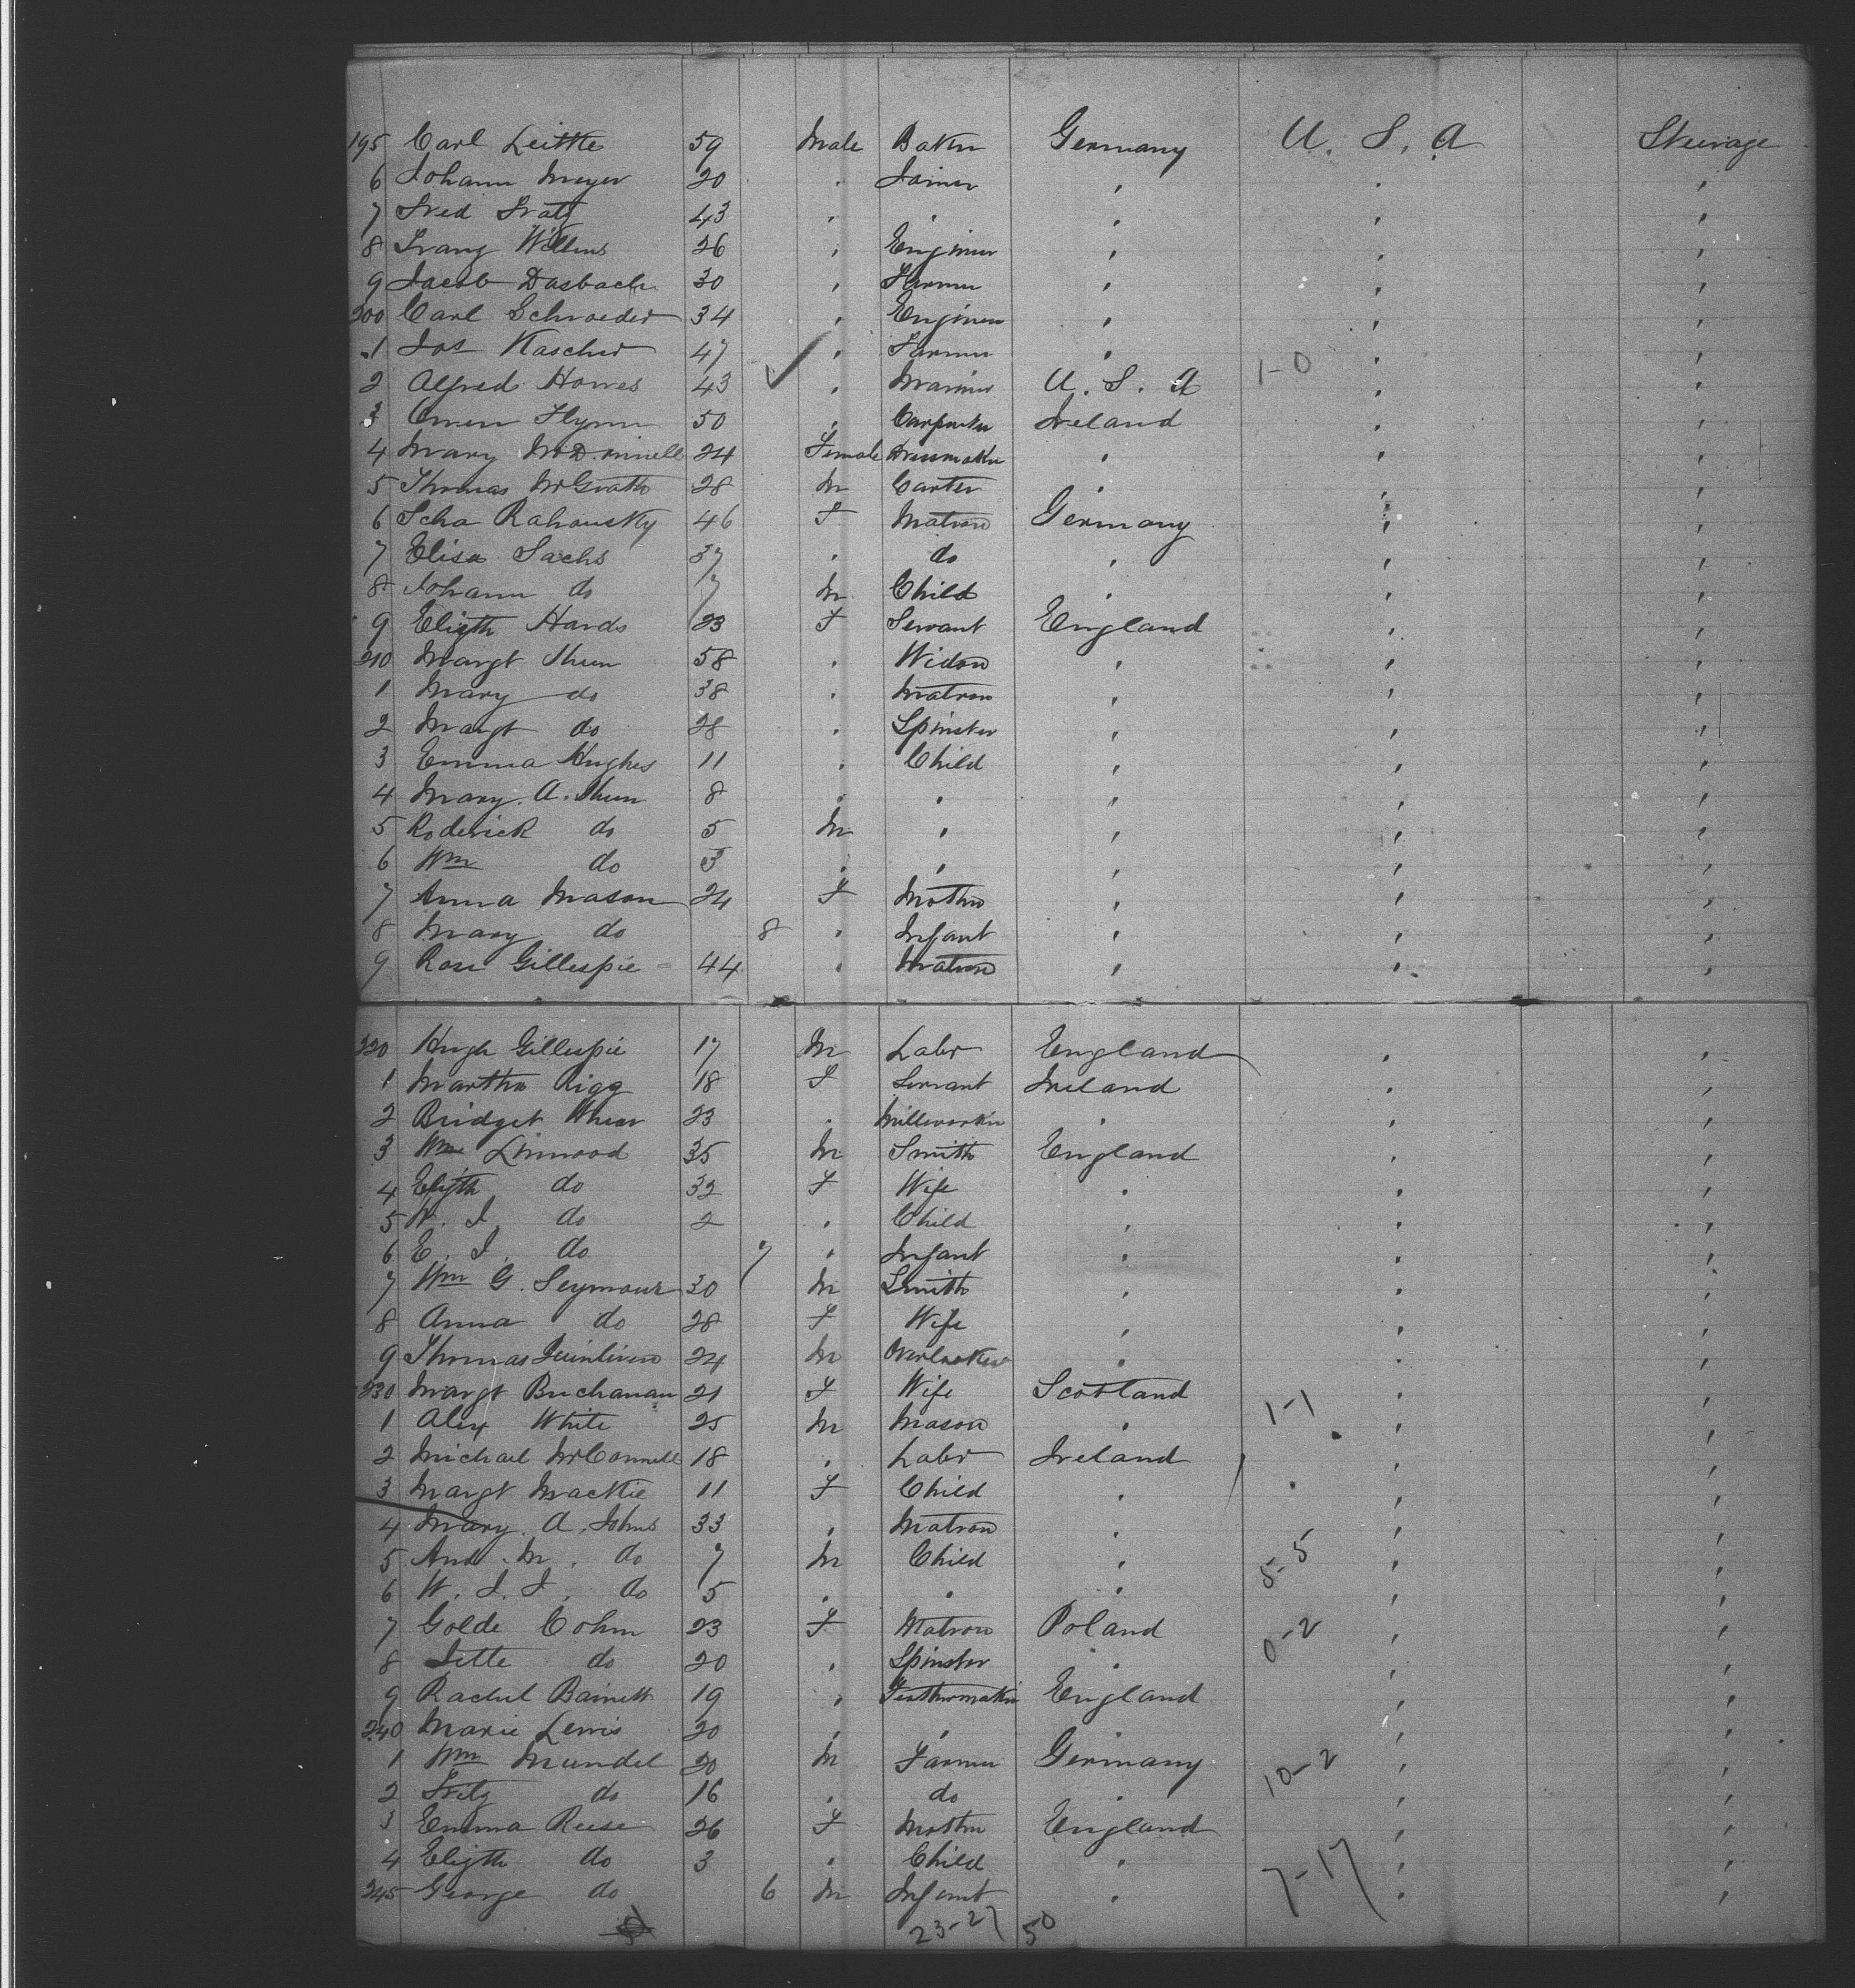 195 Carl Leittle 59 Male Baker Germany U. S. A Steerage
6 Johann Meyer 20 " Joiner " " "
7 Fred Fratz 43 " " " " "
8 Franz Willms 26 " Engineer " " "
9 Jacob Dasbach 30 " Farmer " " "
200 Carl Schroeder 34 " Engineer " " "
1 Jos Kascher 47 " Farmer " " "
2 Alfred Howes 43 " Mariner U. S. A 1-0 " "
3 Owen Flynn 50 " Carpenter Ireland " "
4 Mary 24 Female Dressmaker " " "
5 Thomas McGrath 28 M Carter " " "
6 Scha Rahousky 46 F Matron Germany " "
7 Elisa Sachs 37 " do " " "
8 Johann do 7 M Child " " "
9 Elizth Hards 23 F Servant England " "
210 Margt 58 " Widow " " "
1 Mary do 38 " Matron " " "
2 Margt do 28 " Spinster " " "
3 Emma Hughes 11 " Child " " "
4 Mary. A. 8 " " " " "
5 Roderick do 5 M " " " "
6 Wm do 3 " " " " "
7 Anna Mason 24 F Mother " " "
8 Mary do 8 " Infant " " "
9 Rose Gillespie 44 " Matron " " "
220 Hugh Gillespie 17 M Labr England " "
1 Martha Rigg 18 F Servant Ireland " "
2 Bridget 23 " Millworker " " "
3 Wm Linwood 35 M Smith England " "
4 Elizth do 32 F Wife " " "
5 W. J. do 2 " Child " " "
6 E. J. do 7 " Infant " " "
7 Wm G. Seymour 30 M Smith " " "
8 Anna do 28 F Wife " " "
9 Thomas Quinliven 24 M Overlooker " " "
230 Margt Buchanan 21 F Wife Scotland " "
1 Alex White 25 M Mason " 1-1 " "
2 Michael McConnell 18 " Labr Ireland " "
3 Margt Mackie 11 F Child " " "
4 Mary. A. Johns 33 " Matron " " "
5 And. M. do 7 M Child " 5-5 " "
6 W. J. J. do 5 " " " " "
7 Golde Cohn 23 F Matron Poland 0-2 " "
8 Jette do 20 " Spinster " " "
9 Rachel Barnett 19 " Feathermaker England " "
240 Marie Lewis 20 " " " " "
1 Wm Mundel 20 M Farmer Germany 10-2 " "
2 Fritz do 16 " do " " "
3 Emma Reese 26 F Mother England " "
4 Elizth do 3 " Child " " "
245 George do 6 M Infant " 7-17 " "
23-27 50